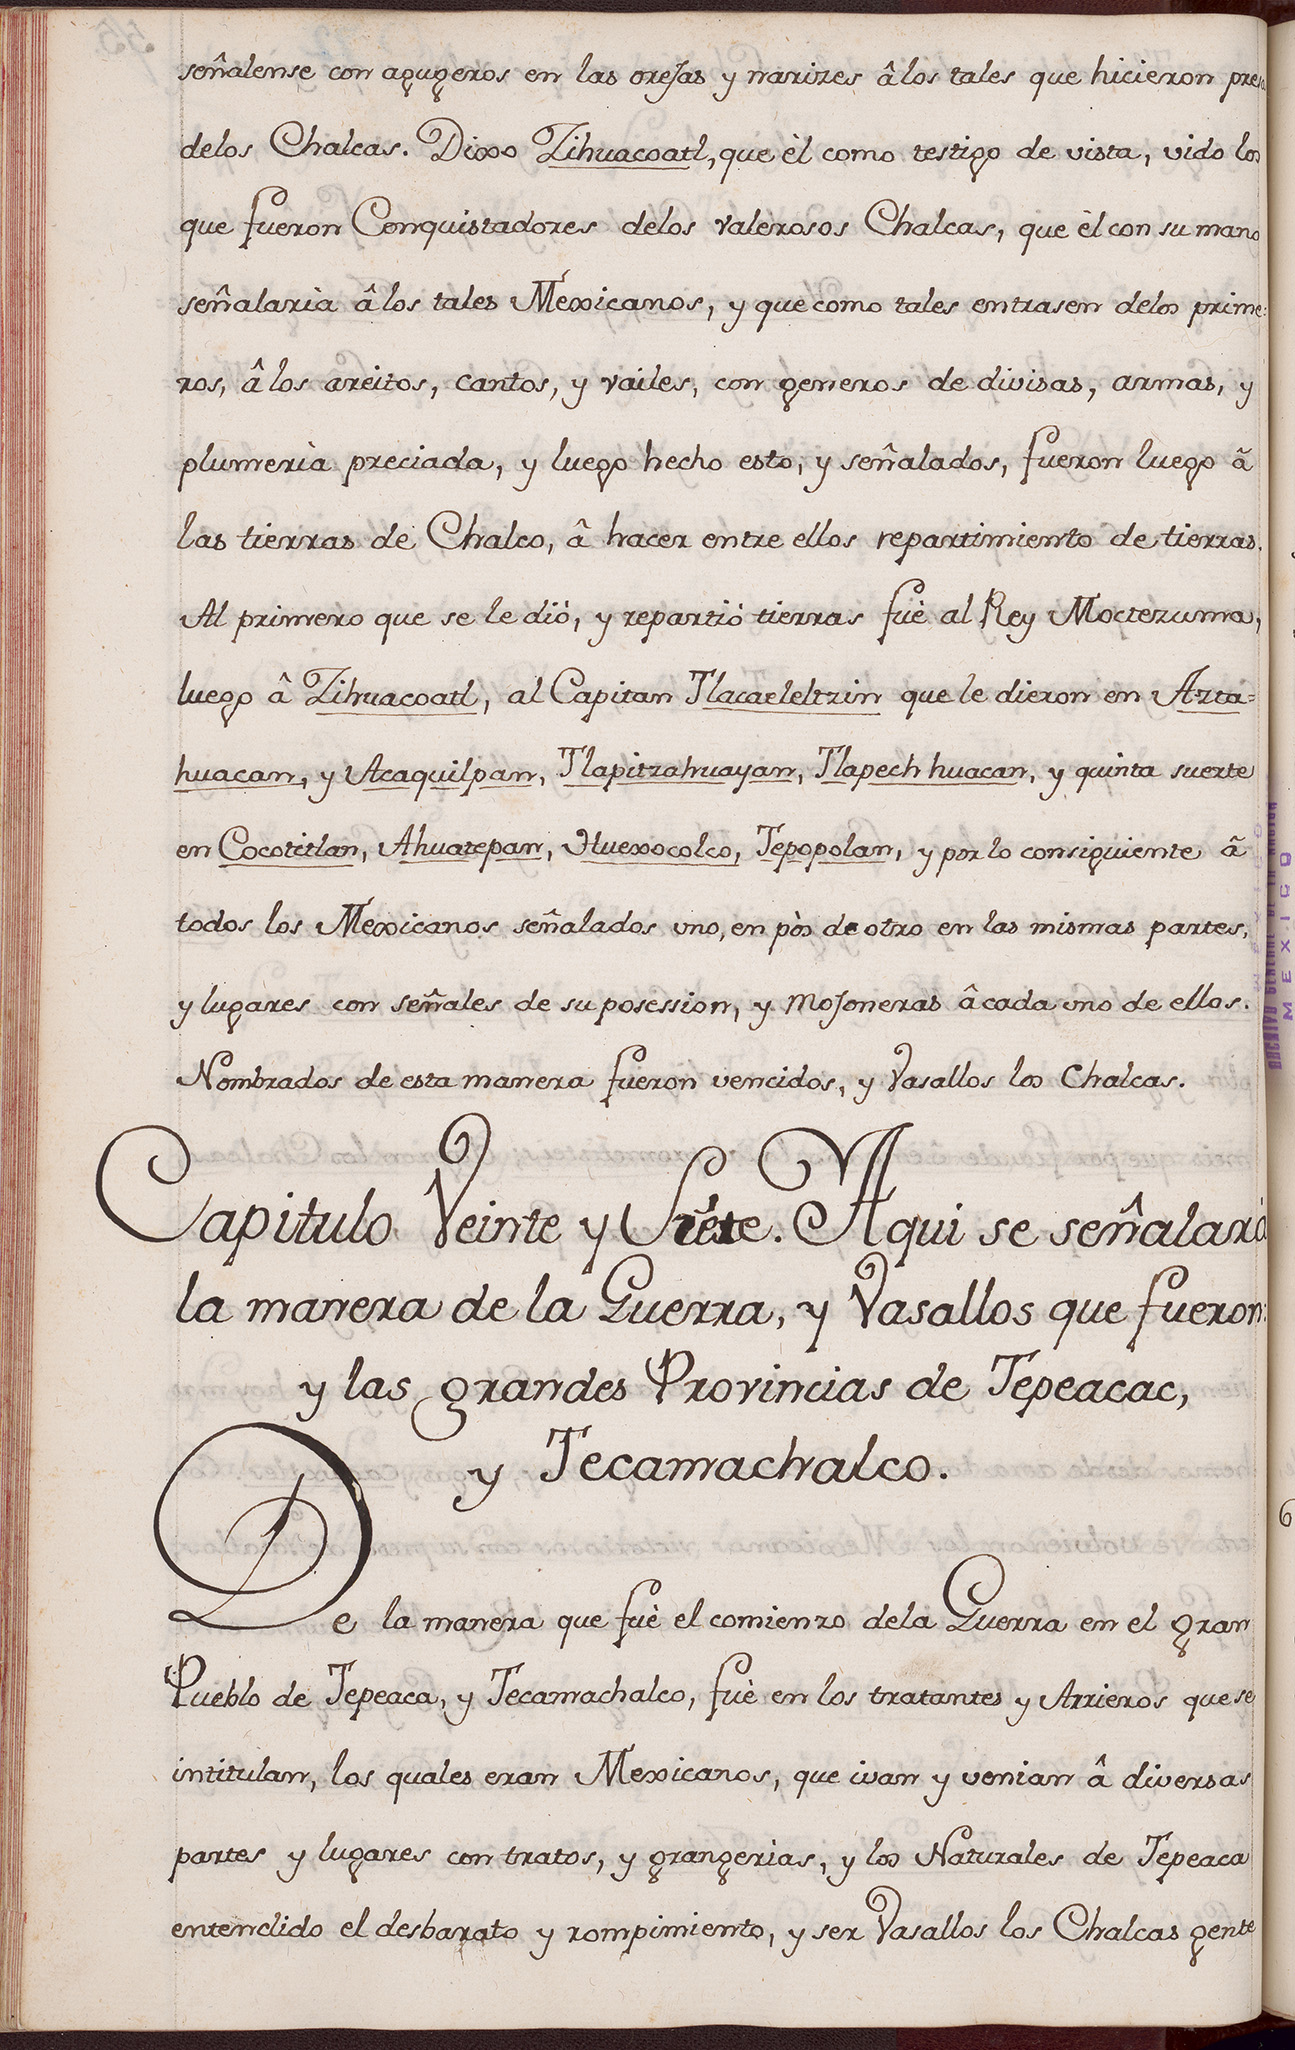 señalense con agugeros en las orejas y narizes â los tales que hicieron presa
delos Chalcas. Dixo Zihuacoatl, que èl como testigo de vista, vido los
que fueron Conquistadores delos valerosos Chalcas, que èl con su mano
señalarìa â los tales Mexicanos, y que como tales entrasen delos prime=
ros, â los areitos, cantos, y vailes, con generos de divisas, armas, y
plumerìa preciada, y luego hecho esto, y señalados, fueron luego â
las tierras de Chalco, â hacer entre ellos repartimiento de tierras.
Al primero que se le dió, y repartió tierras fuè al Rey Moctezuma,
luego â Zihuacoatl, al Capitan Tlacaeleltzin que le dieron en Azta=
huacan, y Acaquilpan, Tlapitzahuayan, Tlapechhuacan, y quinta suerte
en Cocotitlan, Ahuatepan, Huexocolco, Tepopolan, y por lo consiguiente â
todos los Mexicanos señalados uno, en pòs de otro en las mismas partes,
y lugares con señales de su posession, y mojoneras â cada uno de ellos.
Nombrados de esta manera fueron vencidos, y Vasallos los Chalcas.
Capitulo Veinte y Siete. Aqui se señalarà
la manera de la Guerra, y Vasallos que fueron:
y las grandes Provincias de Tepeacac,
y Tecamachalco.
De la manera que fuè el comienzo dela Guerra en el gran
Pueblo de Tepeaca, y Tecamachalco, fuè en los tratantes y Arrieros que se
intitulan, los quales eran Mexicanos, que ivan y venian â diversas
partes y lugares con tratos, y grangerias, y los Naturales de Tepeaca
entendido el desbarato y rompimiento, y ser Vasallos los Chalcas gente
ARCHIVO GENERAL DE LA NACION
MEXICO